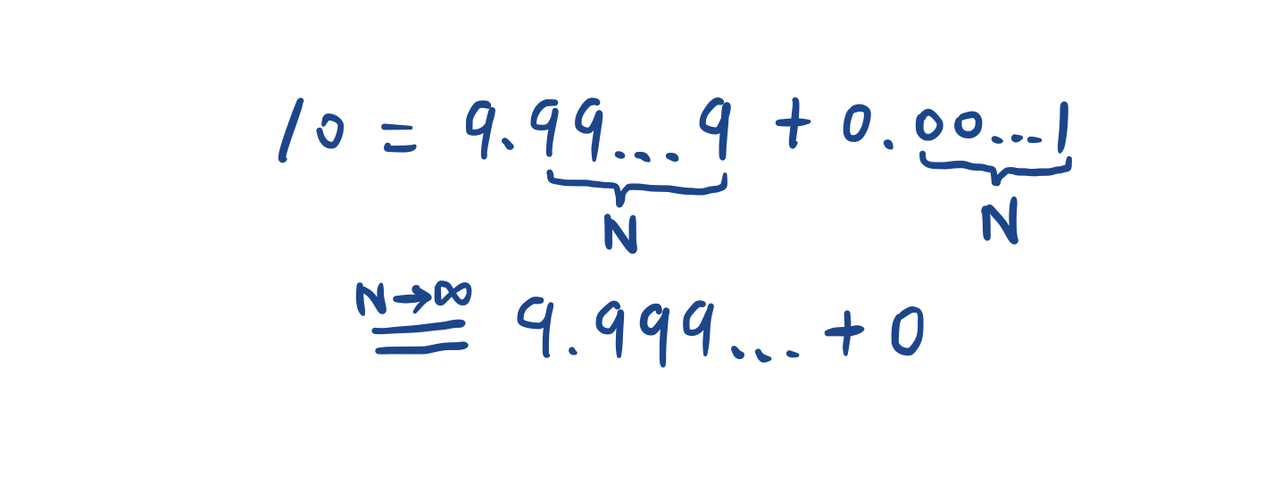 10 = 9.99...9 + 0.00...1
N N
N→∞
= 9.999... + 0